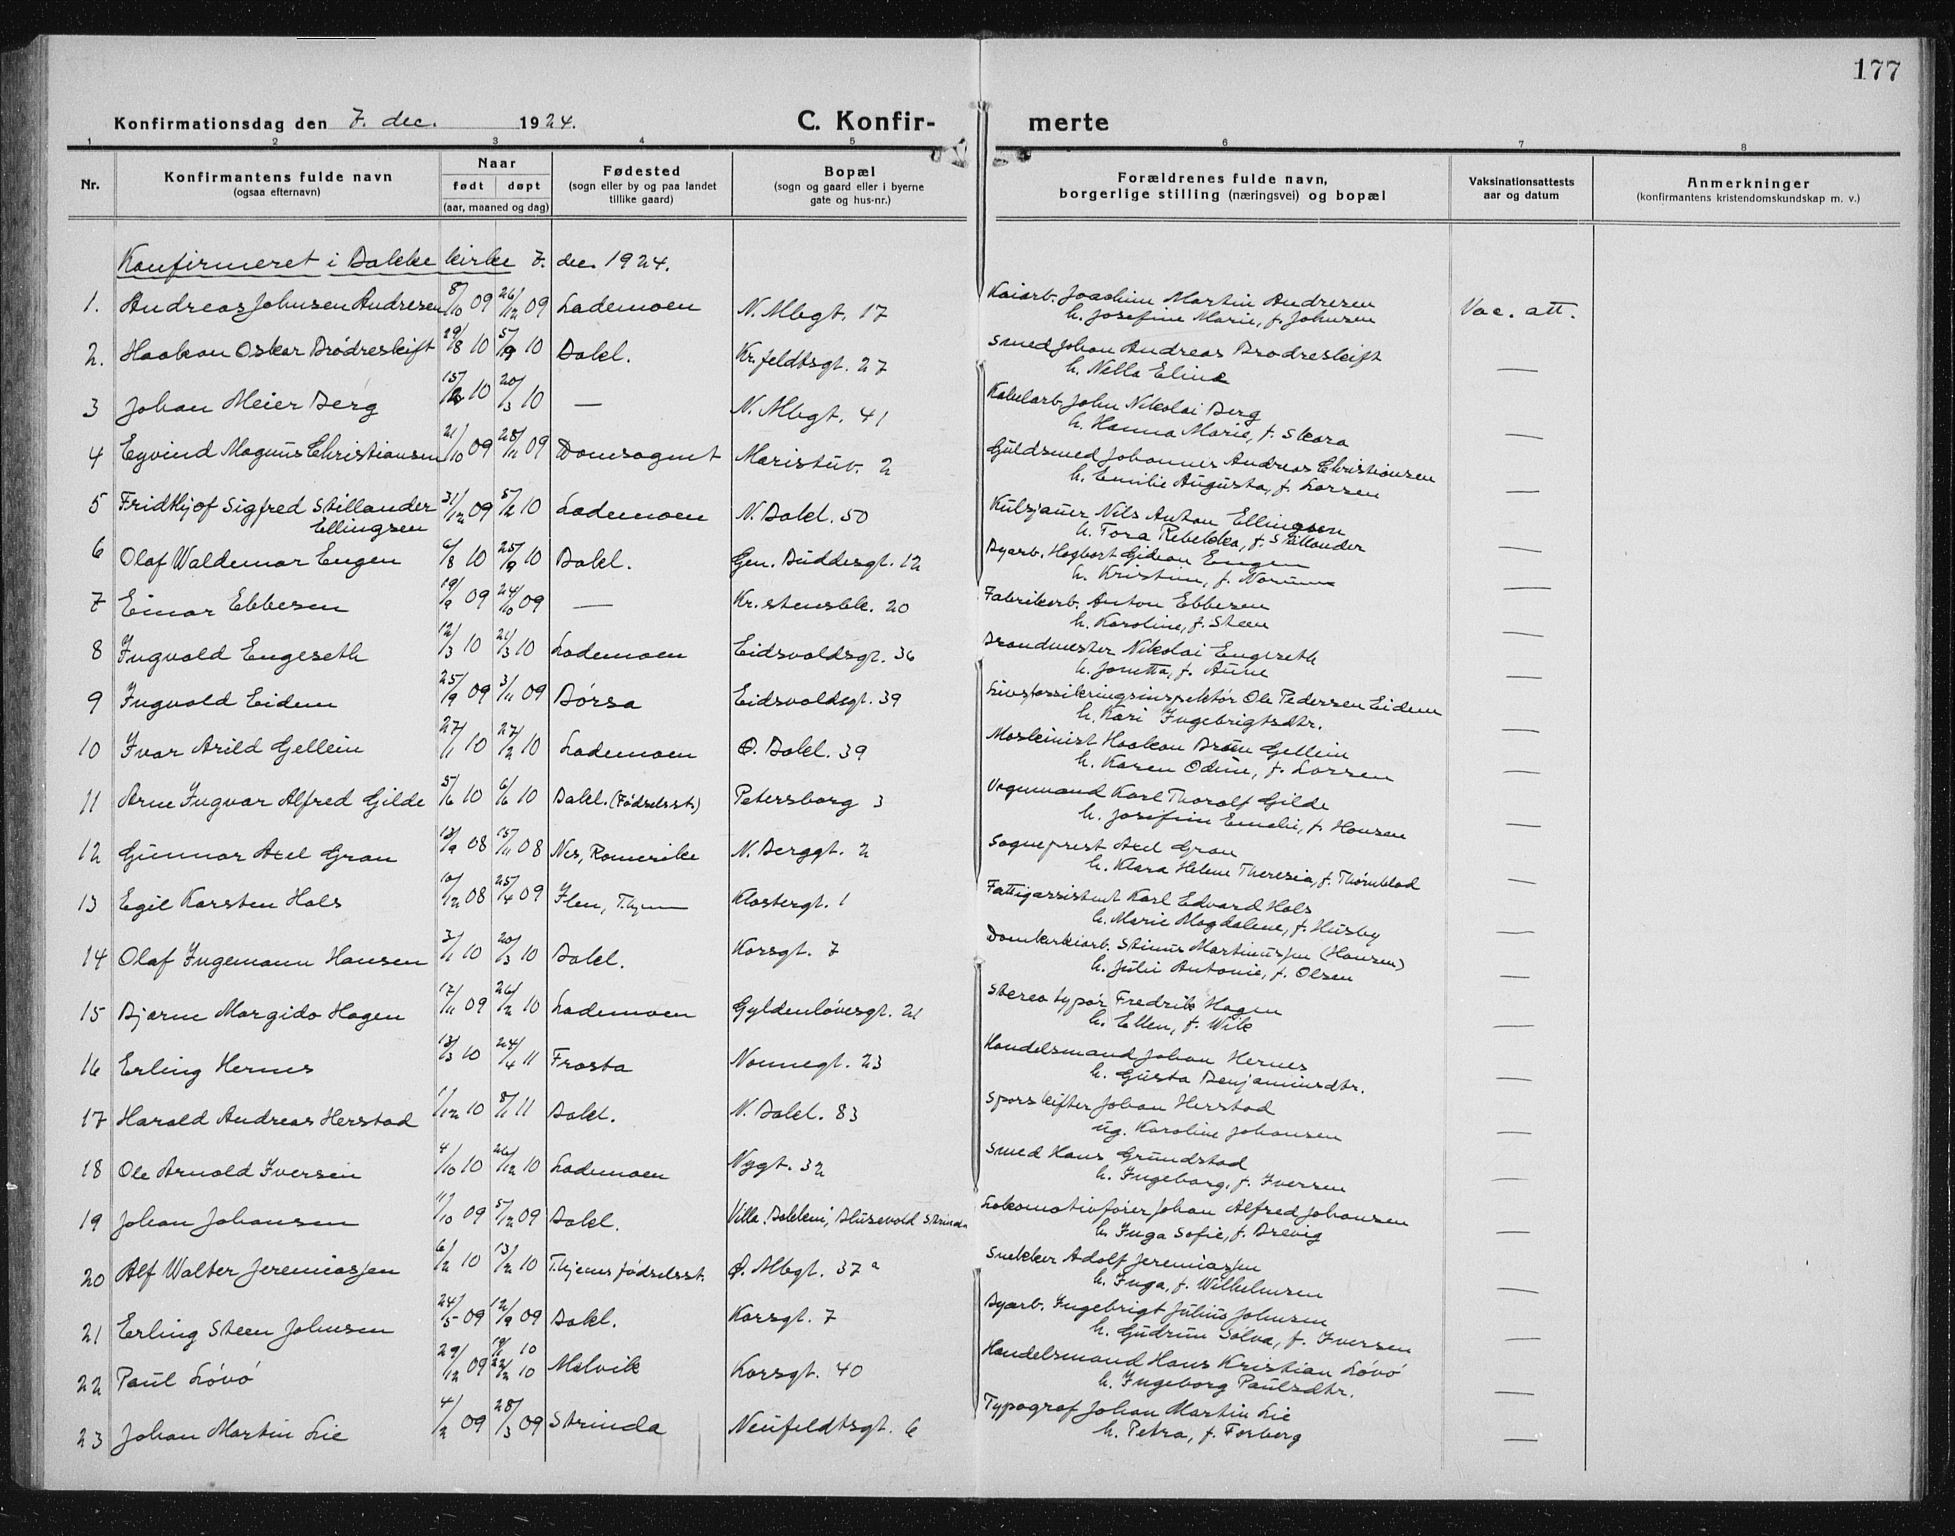 177
Konfirmationsdag den 7. dec. 1924. C. Konfirmerte
1 2 3 4 5 6 7 8
Nr. Konfirmantens fulde navn (ogsaa efternavn) Naar født døpt (aar, maaned og dag) Fødested (sogn eller by og paa landet tillike gaard) Bopæl (sogn og gaard eller i byerne gate og hus-nr.) Forældrenes fulde navn, borgerlige stilling (næringsvei) og bopæl Vaksinationsattests aar og datum Anmerkninger (konfirmantens kristendomskundskap m. v.)
Konfirmeret i Bakke kirke 7. dec. 1924.
1. Andreas Johnsen Andresen 8/10 09 26/12 09 Lademoen N. Mbgt. 17 Kaiarb. Joachim Martin Andresen Vac. att.
h. Josefine Marie, f. Johnsen
2. Haakon Oskar Brødreskift 29/8 10 5/9 10 Bakl. Kr.feldtsgt. 27 Smed Johan Andreas Brødreskift
h. Nella Eline —
3 Johan Meier Berg 20/3 10 — N. Mbgt. 41 Kabelarb. John Nikolai Berg
h. Hanna Marie, f. Skara —
4 Eyvind Magnus Christiansen 21/10 09 28/11 09 Domsognet Maristuv. 2 Guldsmed Johannes Andreas Christiansen
h. Emilie Augusta, f. Larsen —
5 Fridthjof Sigfred Stillander Ellingsen 31/12 09 10 Lademoen N. Bakl. 50 Kulsjauer Nils Anton Ellingsen
h. Tora Rebekka, f. Stillander —
6 Olaf Waldemar Engen 6/8 10 25/9 10 Bakl. Gen. Buddesgt. 12 Byarb. Hagbart Gideon Engen
h. Kristine, f. —
7 Einar Ebbesen 19/9 09 24/10 09 — Kr.stensbk. 20 Fabrikarb. Anton Ebbesen
h. Karoline, f. Steen —
8 Ingvald Engeseth 12/3 10 21/3 10 Lademoen Eidsvoldsgt. 36 Brandmester Nikolai Engeseth
h. Jonetta, f. Aune —
9 Ingvald Eidem 25/9 09 3/11 09 Børsa Eidsvoldsgt. 39 Livsforsikringsinspektør Ole Pedersen Eidem
h. Kari Ingebrigtsdtr. —
10 Ivar Arild Gellein 27/1 10 27/2 10 Lademoen Ø. Bakl. 39 Maskinist Haakon Brun Gellein
h. Karen Odine, f. Larsen —
11 Arne Ingvar Alfred Gilde 5/6 10 6/6 10 Bakl. (Fødselsst.) Petersborg 3 Vognmand Karl Thoralf Gilde
h. Josefine Emelie, f. Hansen —
12 Gunnar Axel Gran 13/9 08 15/11 08 Nes, Romerike N. Berggt. 2 Sogneprest Axel Gran
h. Klara Helene Theresia, f. Thørnblad —
13 Egil Karsten Hals 10/12 08 25/4 09 Ilen, T.hjem Klostergt. 1 Fattigassistent Karl Edvard Hals
h. Marie Magdalene, f. Husby —
14 Olaf Ingemann Hansen 3/1 10 20/3 10 Bakl. Korsgt. 7 Domkirkearb. Stinus Martinussen (Hansen)
h. Julie Antonie, f. Olsen —
15 Bjarne Margido Hagen 17/11 09 26/2 10 Lademoen Gyldenløvesgt. 21 Stereotypør Fredrik Hagen
h. Ellen, f. Wik —
16 Erling Hernes 13/3 10 24/4 11 Frosta Nonnegt. 23 Handelsmand Johan Hernes
h. Gusta Benjaminsdtr. —
17 Harald Andreas Herstad 1/12 10 8/1 11 Bakl. N. Bakl. 83 Sporskifter Johan Herstad
ug. Karoline Johansen —
18 Ole Arnold Iversen 4/10 10 26/12 10 Lademoen Nygt. 32 Smed Hans Grundstad
h. Ingeborg, f. Iversen —
19 Johan Johansen 11/10 09 5/12 09 Bakl. Villa Bakken, Blusevold Strinda Lokomotivfører Johan Alfred Johansen
h. Inga Sofie, f. Brevig —
20 Alf Walter Jeremiassen 6/2 10 13/2 10 T.hjems fødselsst. Ø. Mbgt. 37a Snekker Adolf Jeremiassen
h. Inga, f. Wilhelmsen —
21 Erling Steen Johnsen 24/5 09 12/9 09 Bakl. Korsgt. 7 Byarb. Ingebrigt Julius Johnsen
h. Gudrun Solva, f. Iversen —
22 Paul Løvø 29/12 09 19/1 10 22/2 10 Malvik Korsgt. 40 Handelsmand Hans Kristian Løvø
h. Ingeborg Paulsdtr. —
23 Johan Martin Lie 4/2 09 28/3 09 Strinda Neufeldtsgt. 6 Typograf Johan Martin Lie
h. Petra, f. Forberg —